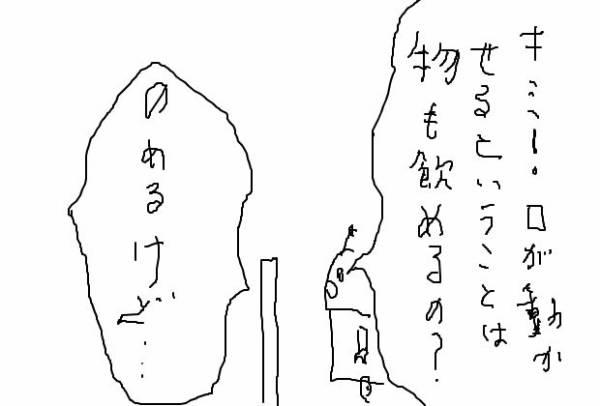 キミー。口が動か
せるということは
物も飲めるの?
のめるけ
ど…